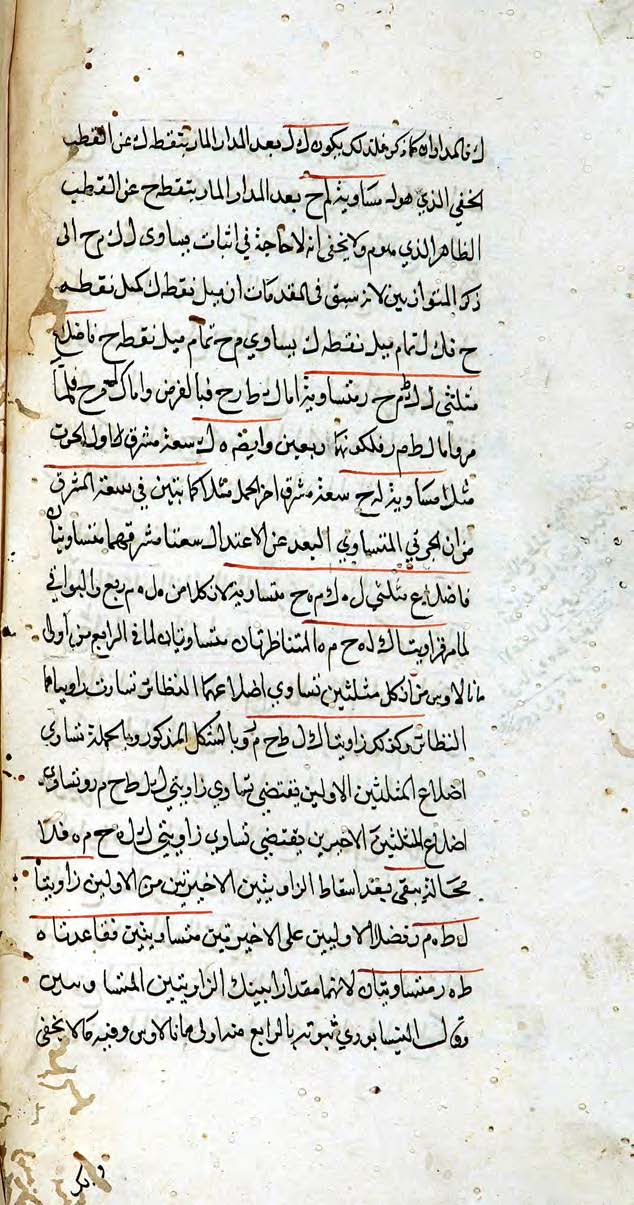 ك فالمداران كما ذكر فلذلك يكون ل ك بعد المدار المار بنقطة ك عن القطب
الخفي الذي هو له مساوية لم ح بعد المدار المار بنقطة ح عن القطب
الظاهر الذي هو م ولا يخفى انه لا حاجة في اثبات تساوى ل ك م ح الى
ذكر المتوازيين لانه سبق في المقدمات ان ميل نقطة ك كميل نقطة
ح فك ل تمام ميل نقطة ك يساوي م ح تمام ميل نقطة ح فاضلاع
مثلثي ل ك ط م ح ر متساوية اما ك ط ر ح فبالفرض واما ك ل م ح فلما
مر واما ل ط م ر فلكونهما ربعين وايضا ه ك سعة مشرق اول الحوت
مثلا مساوية له ح سعة مشرق اخر الحمل مثلا كما تبين في سعة المشرق
من ان الجزئين المتساوي البعد عن الاعتدال سعتا مشرقهما متساويتان
فاضلاع مثلثي ل ه ك م ه ح متساوية لان كلا من ه ل ه م ربع والبواقي
لما مر فزاويتا ك ل ه ح م ه المتناظرتان متساويتان لما في الرابع من اولى
مانالاوس من ان كل مثلثين تساوي اضلاعهما النظائر تساوت زواياهما
النظائر وكذلك زاويتا ك ل ط ح م ر بالشكل المذكور وبالجملة تساوي
اضلاع المثلثين الاولين يقتضي تساوي زاويتي ك ل ط ح م ر وتساوي
اضلاع المثلثين الاخيرين يقتضي تساوي زاويتي ك ل ه ح م ه فلا
محالة يبقى بعد اسقاط الزاويتين الاخيرتين من الاولين زاويتا
ه ل ط ه م ر فضلا الاوليين على الاخيرتين متساويتين فقاعدتاه
ط ه ر متساويتان لانهما مقدارا تينك الزاويتين المتساويتين
وقال النيسابوري ثبوته بالرابع من اولى مانالاوس وفيه كما لا يخفى